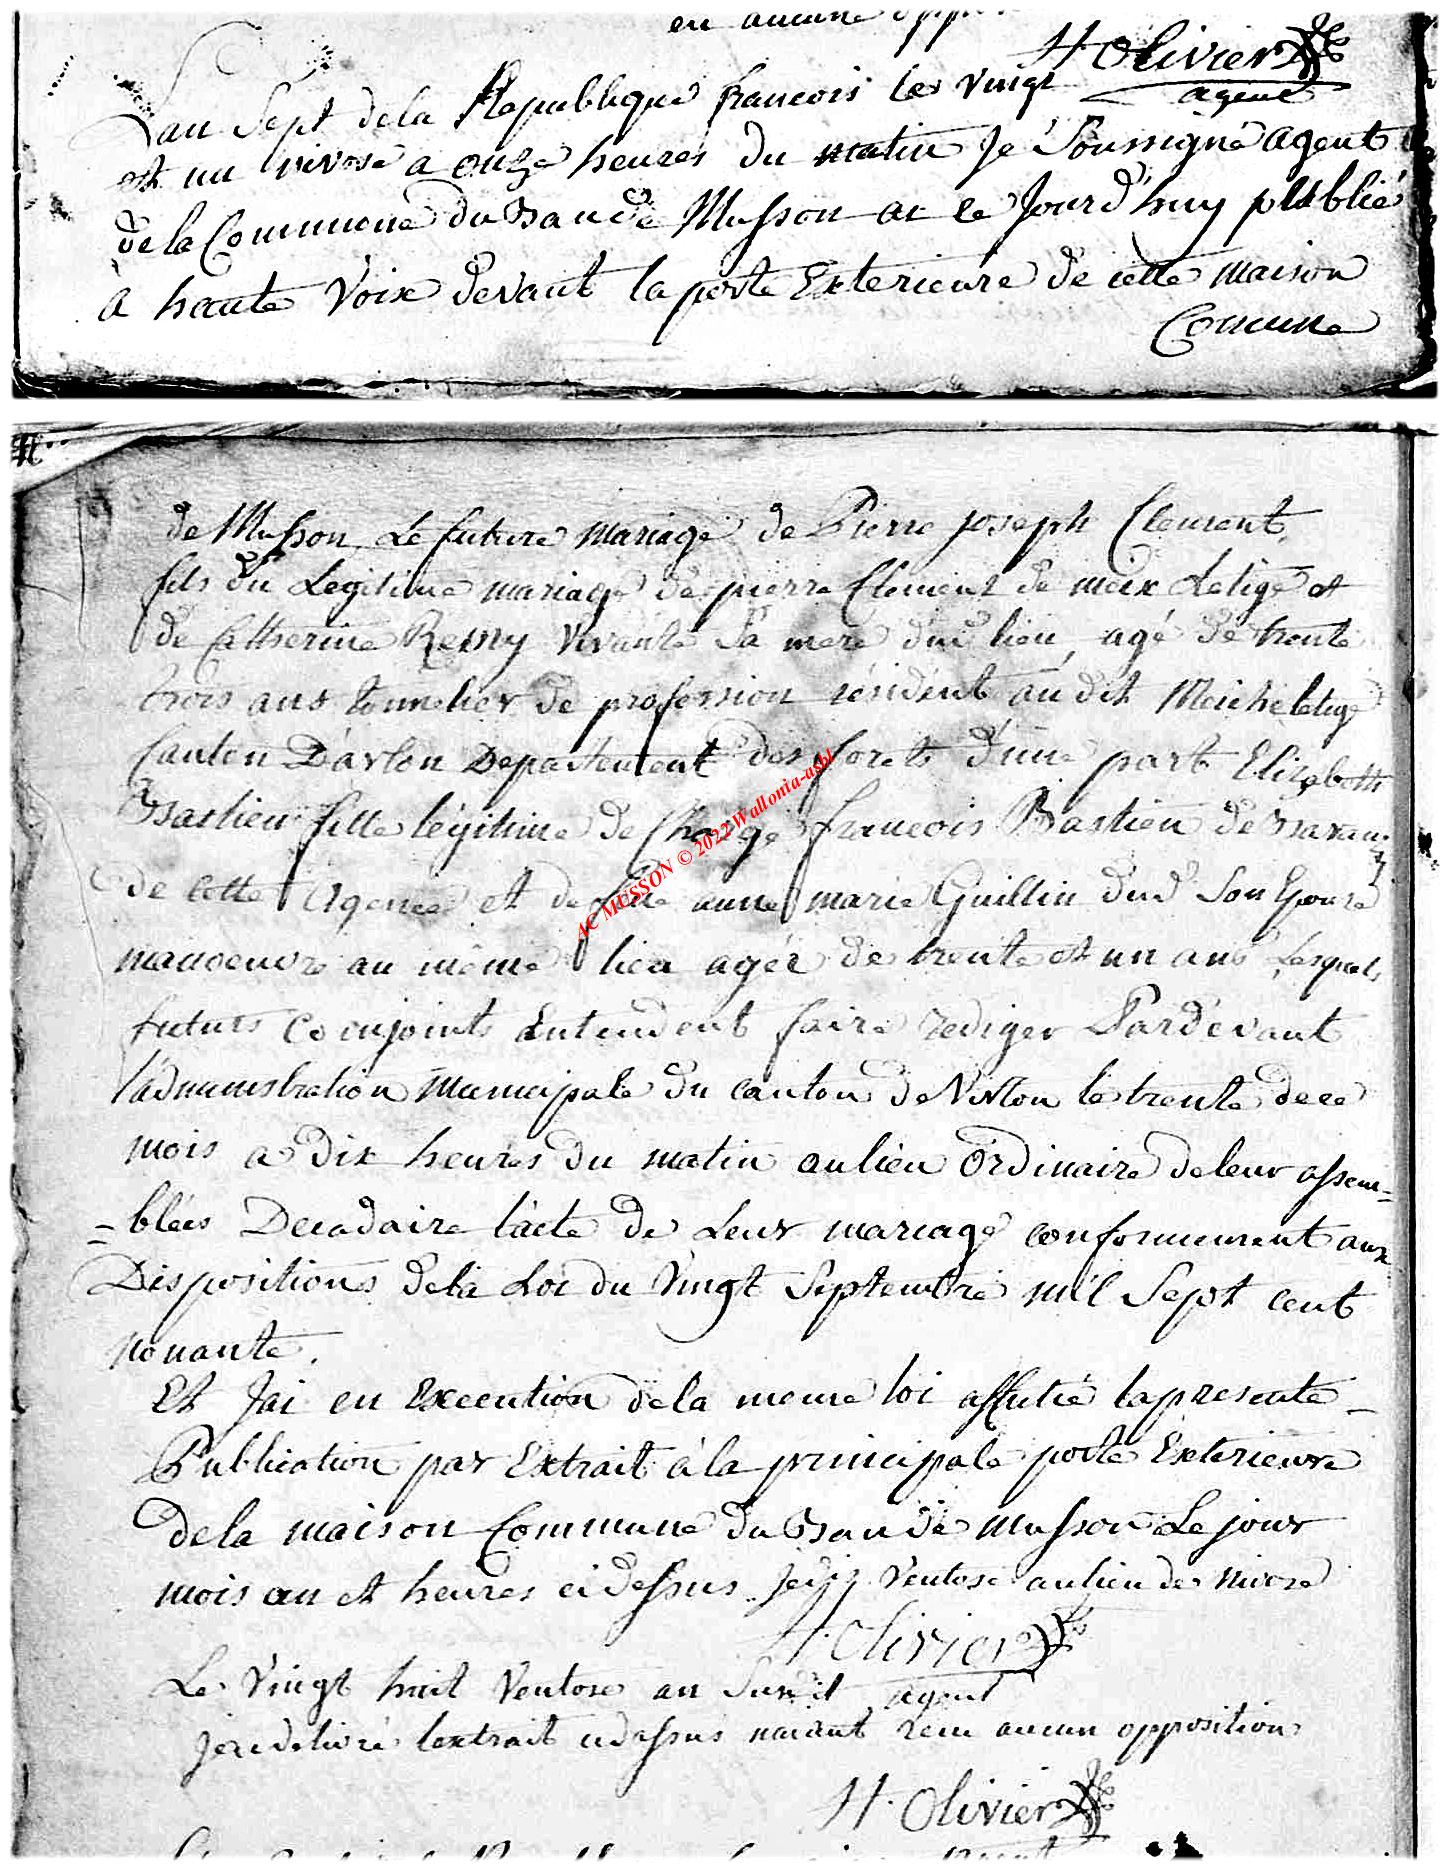 en aucune oppo
H Olivier
agent
Lan Sept dela Republique francois les vingt
et un nivose a onze heures du matin Je Soussigné agent
de la Commune du Ban de Musson ai ce Jourd'huy publié
a haute Voix devant la porte Exterieure de cette maison
Comune
de Musson Le future mariage de Pierre joseph Clement
fils du Legitime mariage de pierre Clement de meix Letige et
de Catherine Remy vivante Sa mere dud lieu, agé de trente
trois ans tonnelier de profession résident audit Meixheletige
Canton D'arlon Departement des forets d'une part Elizabeth
Bastien fille légitime de Charge francois Bastien de Baran
de cette Agence et de anne marie Guillin dud Son Epouse
manoeuvre au même lieu agée de trente et un ans Lesquels
futurs Conjoints Entendent faire rediger Pardevant
l'administration Municipale du canton de Virton le trente de ce
mois a Dix heures du matin au lieu Ordinaire de leur assem=
=blées Decadaire l'acte de Leur mariage conformement aux
Dispositions dela Loi du Vingt Septembre mil Sept cent
nonante.
Et Jai en Execution dela meme loi affiché la presente
Publication par Extrait à la principale porte Exterieure
de la maison Commune du Ban de Musson Le jour
mois an et heures ci dessus Je dis Ventose au lieu de nivose
H. Olivier
agent
Le Vingt huit Ventose an Susdit
jai delivré lextrait cidessus naiant recu aucun opposition
H. Olivier
AC MUSSON © 2022 Wallonia-asbl